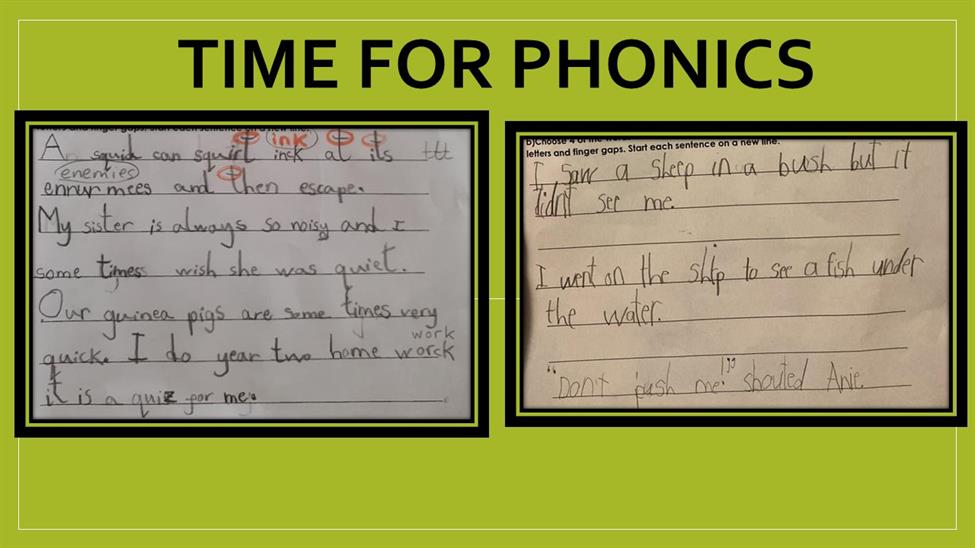 TIME FOR PHONICS
and finger gaps. Start each sentence on a new line.
ink
A squid can squirt inck at its ttt
enemies
ennurmees and then escape.
My sister is always so noisy and I
some times wish she was quiet.
Our guinea pigs are some times very
work
quick. I do year two home worck
it is a quiz for me.
b)Choose 4 of the
letters and finger gaps. Start each sentence on a new line.
I saw a sheep in a bush but it
didn't see me.
I went on the ship to see a fish under
the water.
"Don't push me!" shouted Anie